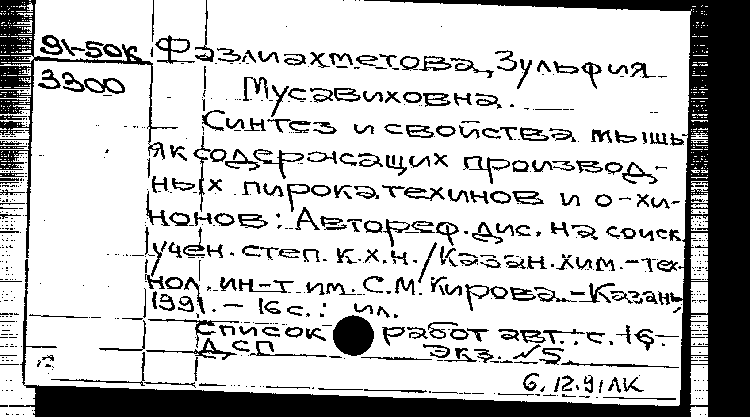 91-50к Фазлиахметова, Зульфия
3300
Мусавиховна.
Синтез и свойства мышь-
яксодержащих производ-
ных пирокатехинов и о-хи-
нонов: Автореф. дис. на соиск.
учен. степ. к.х.н. / Казан. хим.-тех-
нол. ин-т им. С.М. Кирова. - Казань,
1991. - 16 с.: ил.
Список работ авт.: с. 16.
ДСП Экз. №5.
6.12.91 ЛК